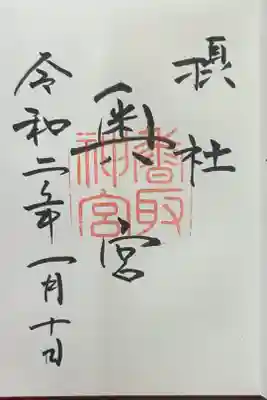 摂社
奥宮
香取
神宮
令和二年一月十日